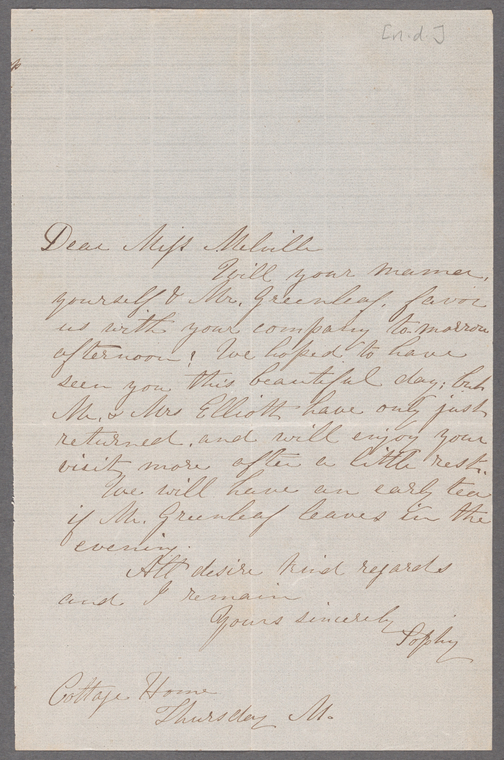 [n.d.]
Dear Miss Melville
Will your mamma,
yourself & Mr. Greenleaf, favor
us with your company to-morrow
afternoon? We hoped to have
seen you this beautiful day; but
Mr. & Mrs Elliott have only just
returned, and will enjoy your
visit more after a little rest.
We will have an early tea
if Mr. Greenleaf leaves in the
evening.
All desire kind regards
and I remain
Yours sincerely
Sophy
Cottage Home
Thursday M.